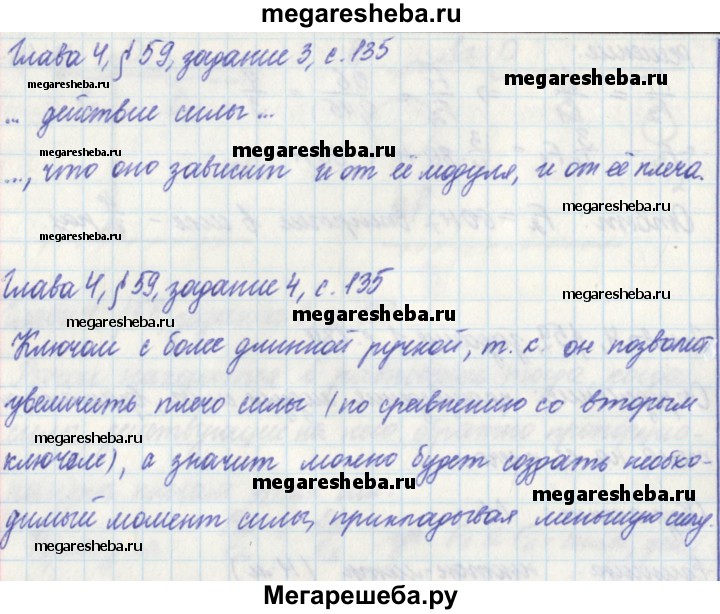 megaresheba.ru
Глава 4, § 59, задание 3, с. 135
megaresheba.ru
megaresheba.ru
... действие силы ...
megaresheba.ru
..., что оно зависит и от её модуля, и от её плеча.
megaresheba.ru
megaresheba.ru
Глава 4, § 59, задание 4, с. 135
megaresheba.ru
megaresheba.ru
Ключом с более длинной ручкой, т. к. он позволит
увеличить плечо силы (по сравнению со вторым
megaresheba.ru
ключом), а значит можно будет создать необхо-
megaresheba.ru
megaresheba.ru
димый момент силы, прикладывая меньшую силу.
megaresheba.ru
megaresheba.ru
Мегарешеба.ру